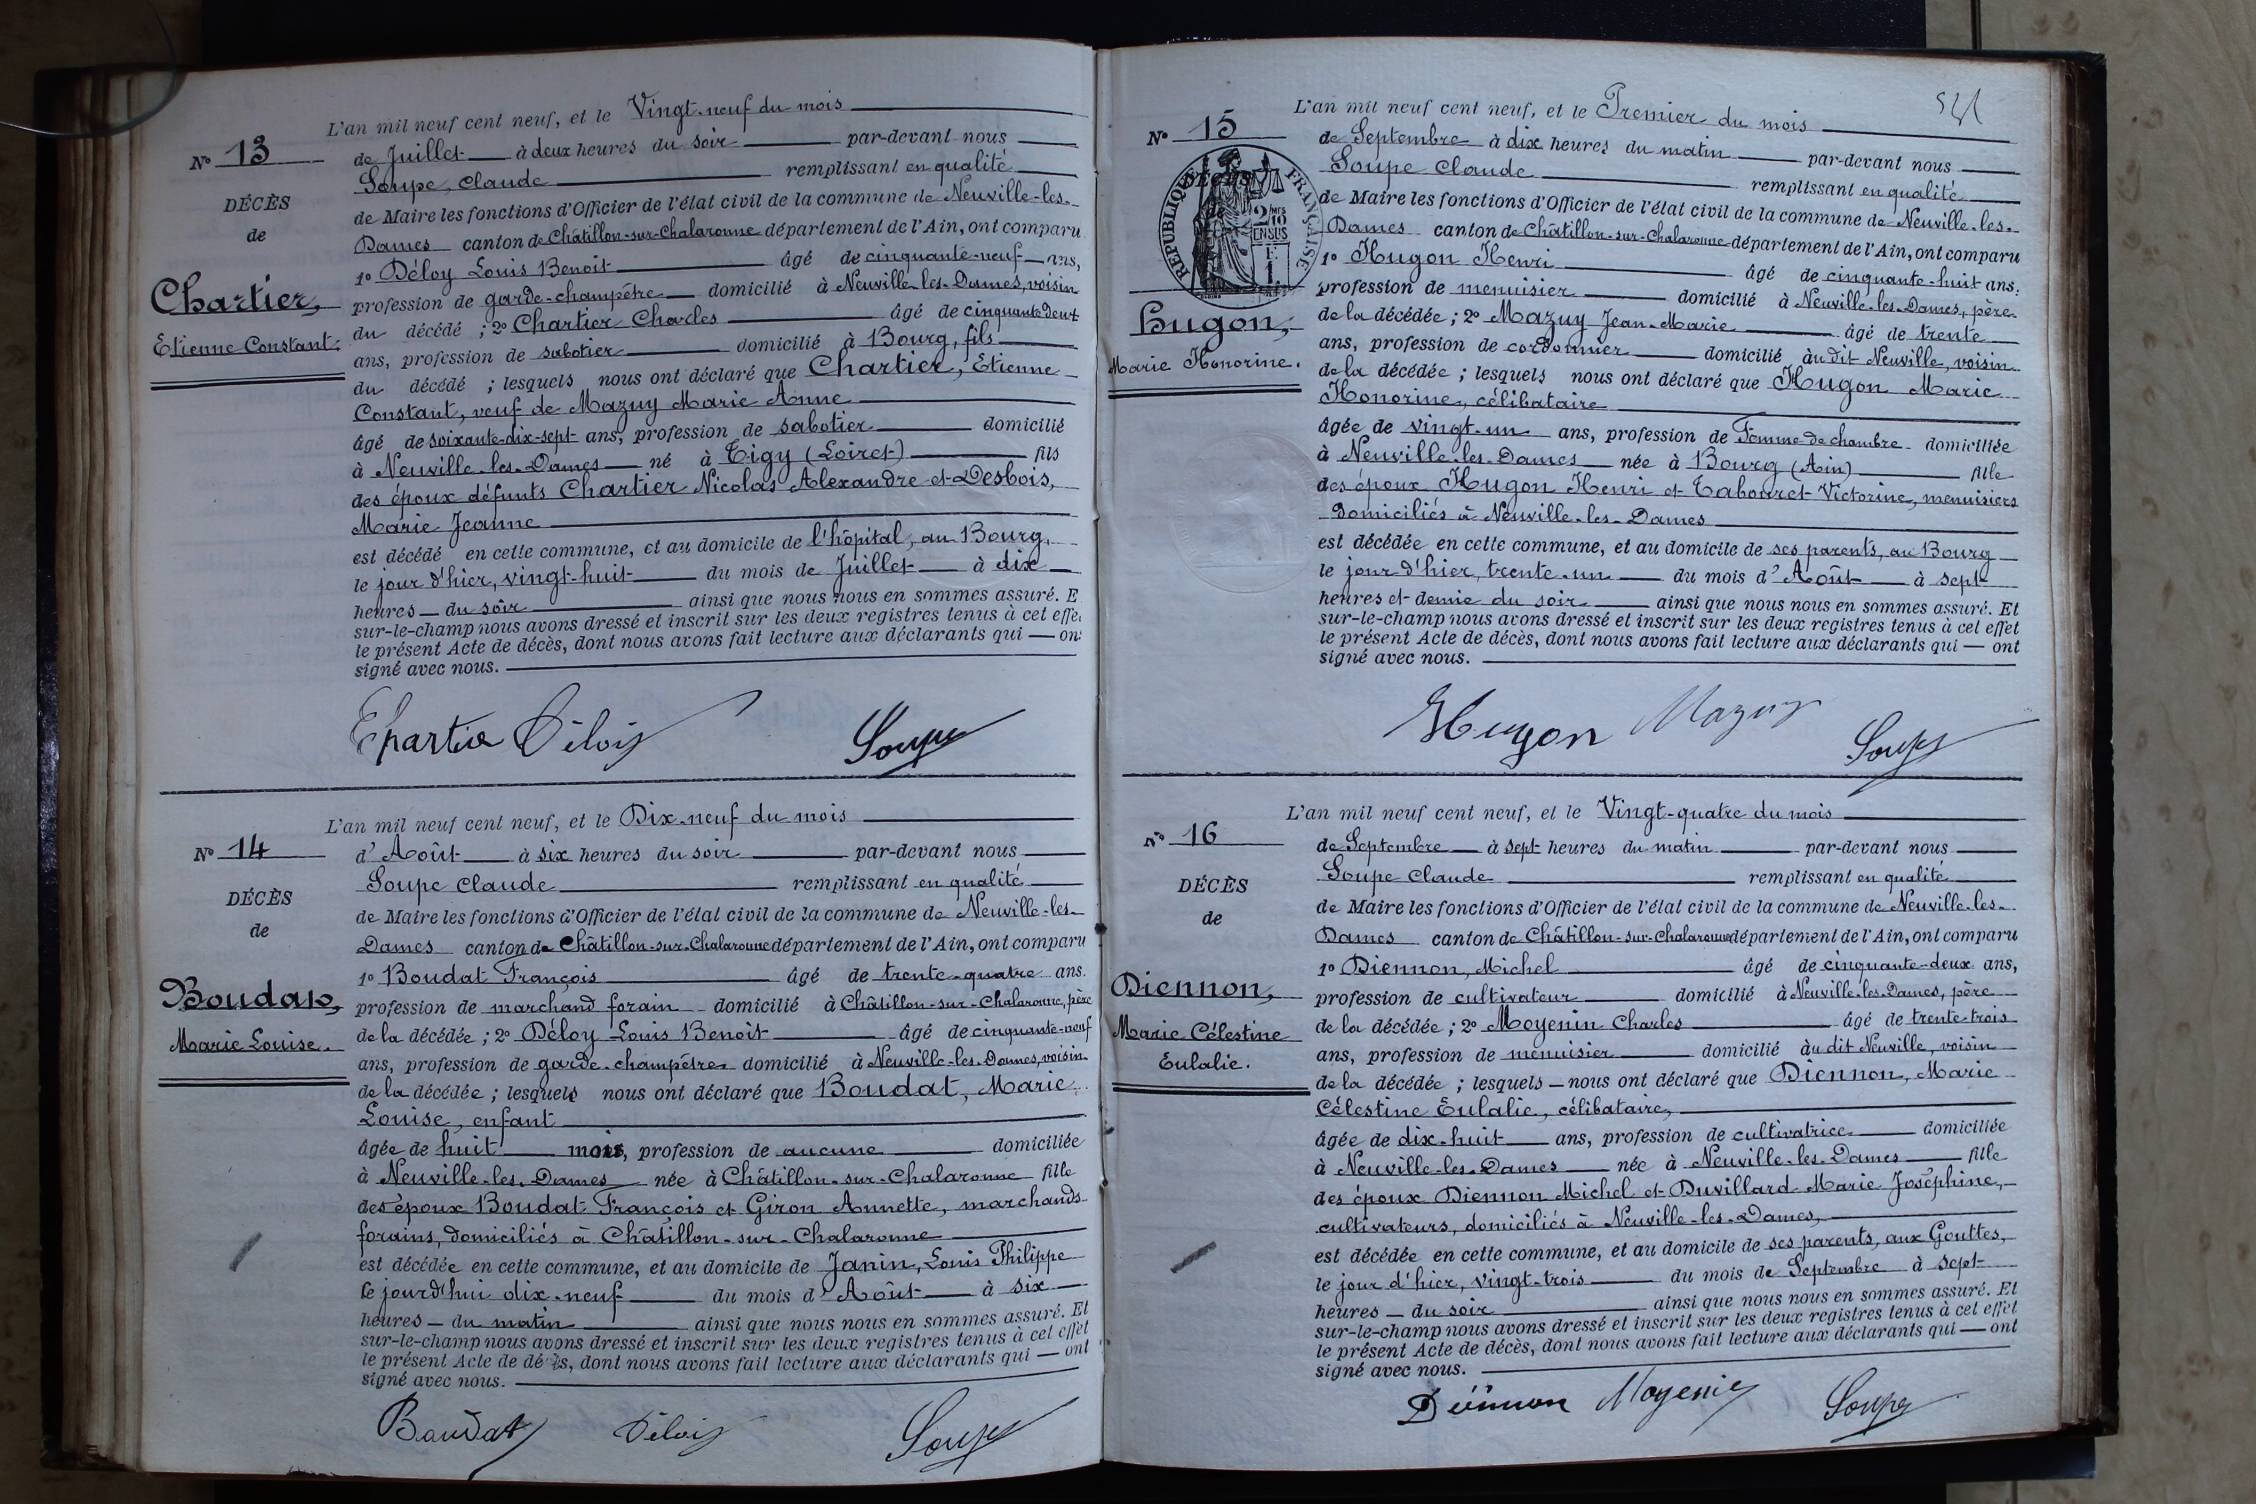 L'an mil neuf cent neuf, et le Vingt-neuf du mois
N° 13
de Juillet à deux heures du soir par-devant nous
Soupe, Claude remplissant en qualité
DÉCÈS
de Maire les fonctions d'Officier de l'état civil de la commune de Neuville-les-
de
Dames canton de Châtillon-sur-Chalaronne département de l'Ain, ont comparu
1° Déloy Louis Benoit âgé de cinquante-neuf ans,
Chartier,
profession de garde-champêtre domicilié à Neuville-les-Dames, voisin
du décédé ; 2° Chartier Charles âgé de cinquante deux
Etienne Constant.
ans, profession de sabotier domicilié à Bourg, fils
du décédé ; lesquels nous ont déclaré que Chartier, Etienne
Constant, veuf de Mazuy Marie Anne
âgé de soixante-dix-sept ans, profession de sabotier domicilié
à Neuville-les-Dames né à Tigy (Loiret) fils
des époux défunts Chartier Nicolas Alexandre et Desbois,
Marie Jeanne
est décédé en cette commune, et au domicile de l'hôpital, au Bourg,
le jour d'hier, vingt-huit du mois de Juillet à dix
heures du soir ainsi que nous nous en sommes assuré. E
sur-le-champ nous avons dressé et inscrit sur les deux registres tenus à cet effe
le présent Acte de décès, dont nous avons fait lecture aux déclarants qui — on
signé avec nous.
Chartier Déloy Soupe
L'an mil neuf cent neuf, et le Dix-neuf du mois
N° 14
d'Août à six heures du soir par-devant nous
Soupe Claude remplissant en qualité
DÉCÈS
de Maire les fonctions d'Officier de l'état civil de la commune de Neuville-les-
de
Dames canton de Châtillon-sur-Chalaronne département de l'Ain, ont comparu
1° Boudat François âgé de trente-quatre ans.
Boudat,
profession de marchand forain domicilié à Châtillon-sur-Chalaronne, père
de la décédée ; 2° Déloy Louis Benoit âgé de cinquante-neuf
Marie Louise.
ans, profession de garde-champêtre domicilié à Neuville-les-Dames, voisin
de la décédée ; lesquels nous ont déclaré que Boudat, Marie
Louise, enfant
âgée de huit mois, profession de aucune domiciliée
à Neuville-les-Dames née à Châtillon-sur-Chalaronne fille
des époux Boudat François et Giron Annette, marchands
forains, domiciliés à Châtillon-sur-Chalaronne
est décédée en cette commune, et au domicile de Janin, Louis Philippe
le jourd'hui dix-neuf du mois d'Août à six
heures — du matin ainsi que nous nous en sommes assuré. Et
sur-le-champ nous avons dressé et inscrit sur les deux registres tenus à cet effet
le présent Acte de décès, dont nous avons fait lecture aux déclarants qui — ont
signé avec nous.
Boudat Déloy Soupe
L'an mil neuf cent neuf, et le Premier du mois
N° 15
de Septembre à dix heures du matin par-devant nous
Soupe Claude remplissant en qualité
DÉCÈS
de
RÉPUBLIQUE FRANÇAISE
2/10 EN SUS
1 F.
de Maire les fonctions d'Officier de l'état civil de la commune de Neuville-les-
Dames canton de Châtillon-sur-Chalaronne département de l'Ain, ont comparu
1° Hugon Henri âgé de cinquante-huit ans.
profession de menuisier domicilié à Neuville-les-Dames, père
Hugon,
de la décédée ; 2° Mazuy Jean-Marie âgé de trente
ans, profession de cordonnier domicilié àu dit Neuville, voisin
Marie Honorine.
de la décédée ; lesquels nous ont déclaré que Hugon Marie
Honorine, célibataire
âgée de vingt-un ans, profession de Femme de chambre domiciliée
à Neuville-les-Dames née à Bourg (Ain) fille
des époux Hugon Henri et Tabouret Victorine, menuisiers
domiciliés à Neuville-les-Dames
est décédée en cette commune, et au domicile de ses parents, au Bourg
le jour d'hier, trente-un du mois d'Août à sept
heures et demie du soir ainsi que nous nous en sommes assuré. Et
sur-le-champ nous avons dressé et inscrit sur les deux registres tenus à cet effet
le présent Acte de décès, dont nous avons fait lecture aux déclarants qui — ont
signé avec nous.
Hugon Mazuy Soupe
L'an mil neuf cent neuf, et le Vingt-quatre du mois
N° 16
de Septembre à sept heures du matin par-devant nous
Soupe Claude remplissant en qualité
DÉCÈS
de Maire les fonctions d'Officier de l'état civil de la commune de Neuville-les-
de
Dames canton de Châtillon-sur-Chalaronne département de l'Ain, ont comparu
1° Diennon, Michel âgé de cinquante-deux ans,
Diennon,
profession de cultivateur domicilié à Neuville-les-Dames, père
de la décédée ; 2° Moyenin Charles âgé de trente-trois
Marie Célestine
ans, profession de menuisier domicilié àu dit Neuville, voisin
Eulalie.
de la décédée ; lesquels — nous ont déclaré que Diennon, Marie
Célestine Eulalie, célibataire,
âgée de dix-huit ans, profession de cultivatrice domiciliée
à Neuville-les-Dames née à Neuville-les-Dames fille
des époux Diennon Michel et Duvillard Marie Joséphine,
cultivateurs, domiciliés à Neuville-les-Dames,
est décédée en cette commune, et au domicile de ses parents, aux Gouttes,
le jour d'hier, vingt-trois du mois de Septembre à sept
heures — du soir ainsi que nous nous en sommes assuré. Et
sur-le-champ nous avons dressé et inscrit sur les deux registres tenus à cet effet
le présent Acte de décès, dont nous avons fait lecture aux déclarants qui — ont
signé avec nous.
Diennon Moyenin Soupe